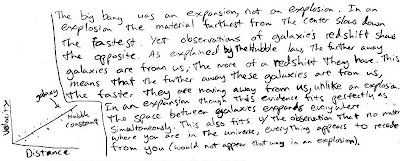 The big bang was an expansion, not an explosion. In an
explosion the material furthest from the center slows down
the fastest. Yet observations of galaxie's redshift show
the opposite. As explained by the Hubble law, the further away
galaxies are from us, the more of a redshift they have. This
means that the further away these galaxies are from us,
the faster they are moving away from us, unlike an explosion.
In an expansion though this evidence fits perfectly as
the space between galaxies expands everywhere
simultaneously. This also fits w/ the observation that no matter
where you are in the universe, everything appears to recede
from you (would not appear that way in an explosion).
galaxy
Hubble
constant
Velocity
Distance